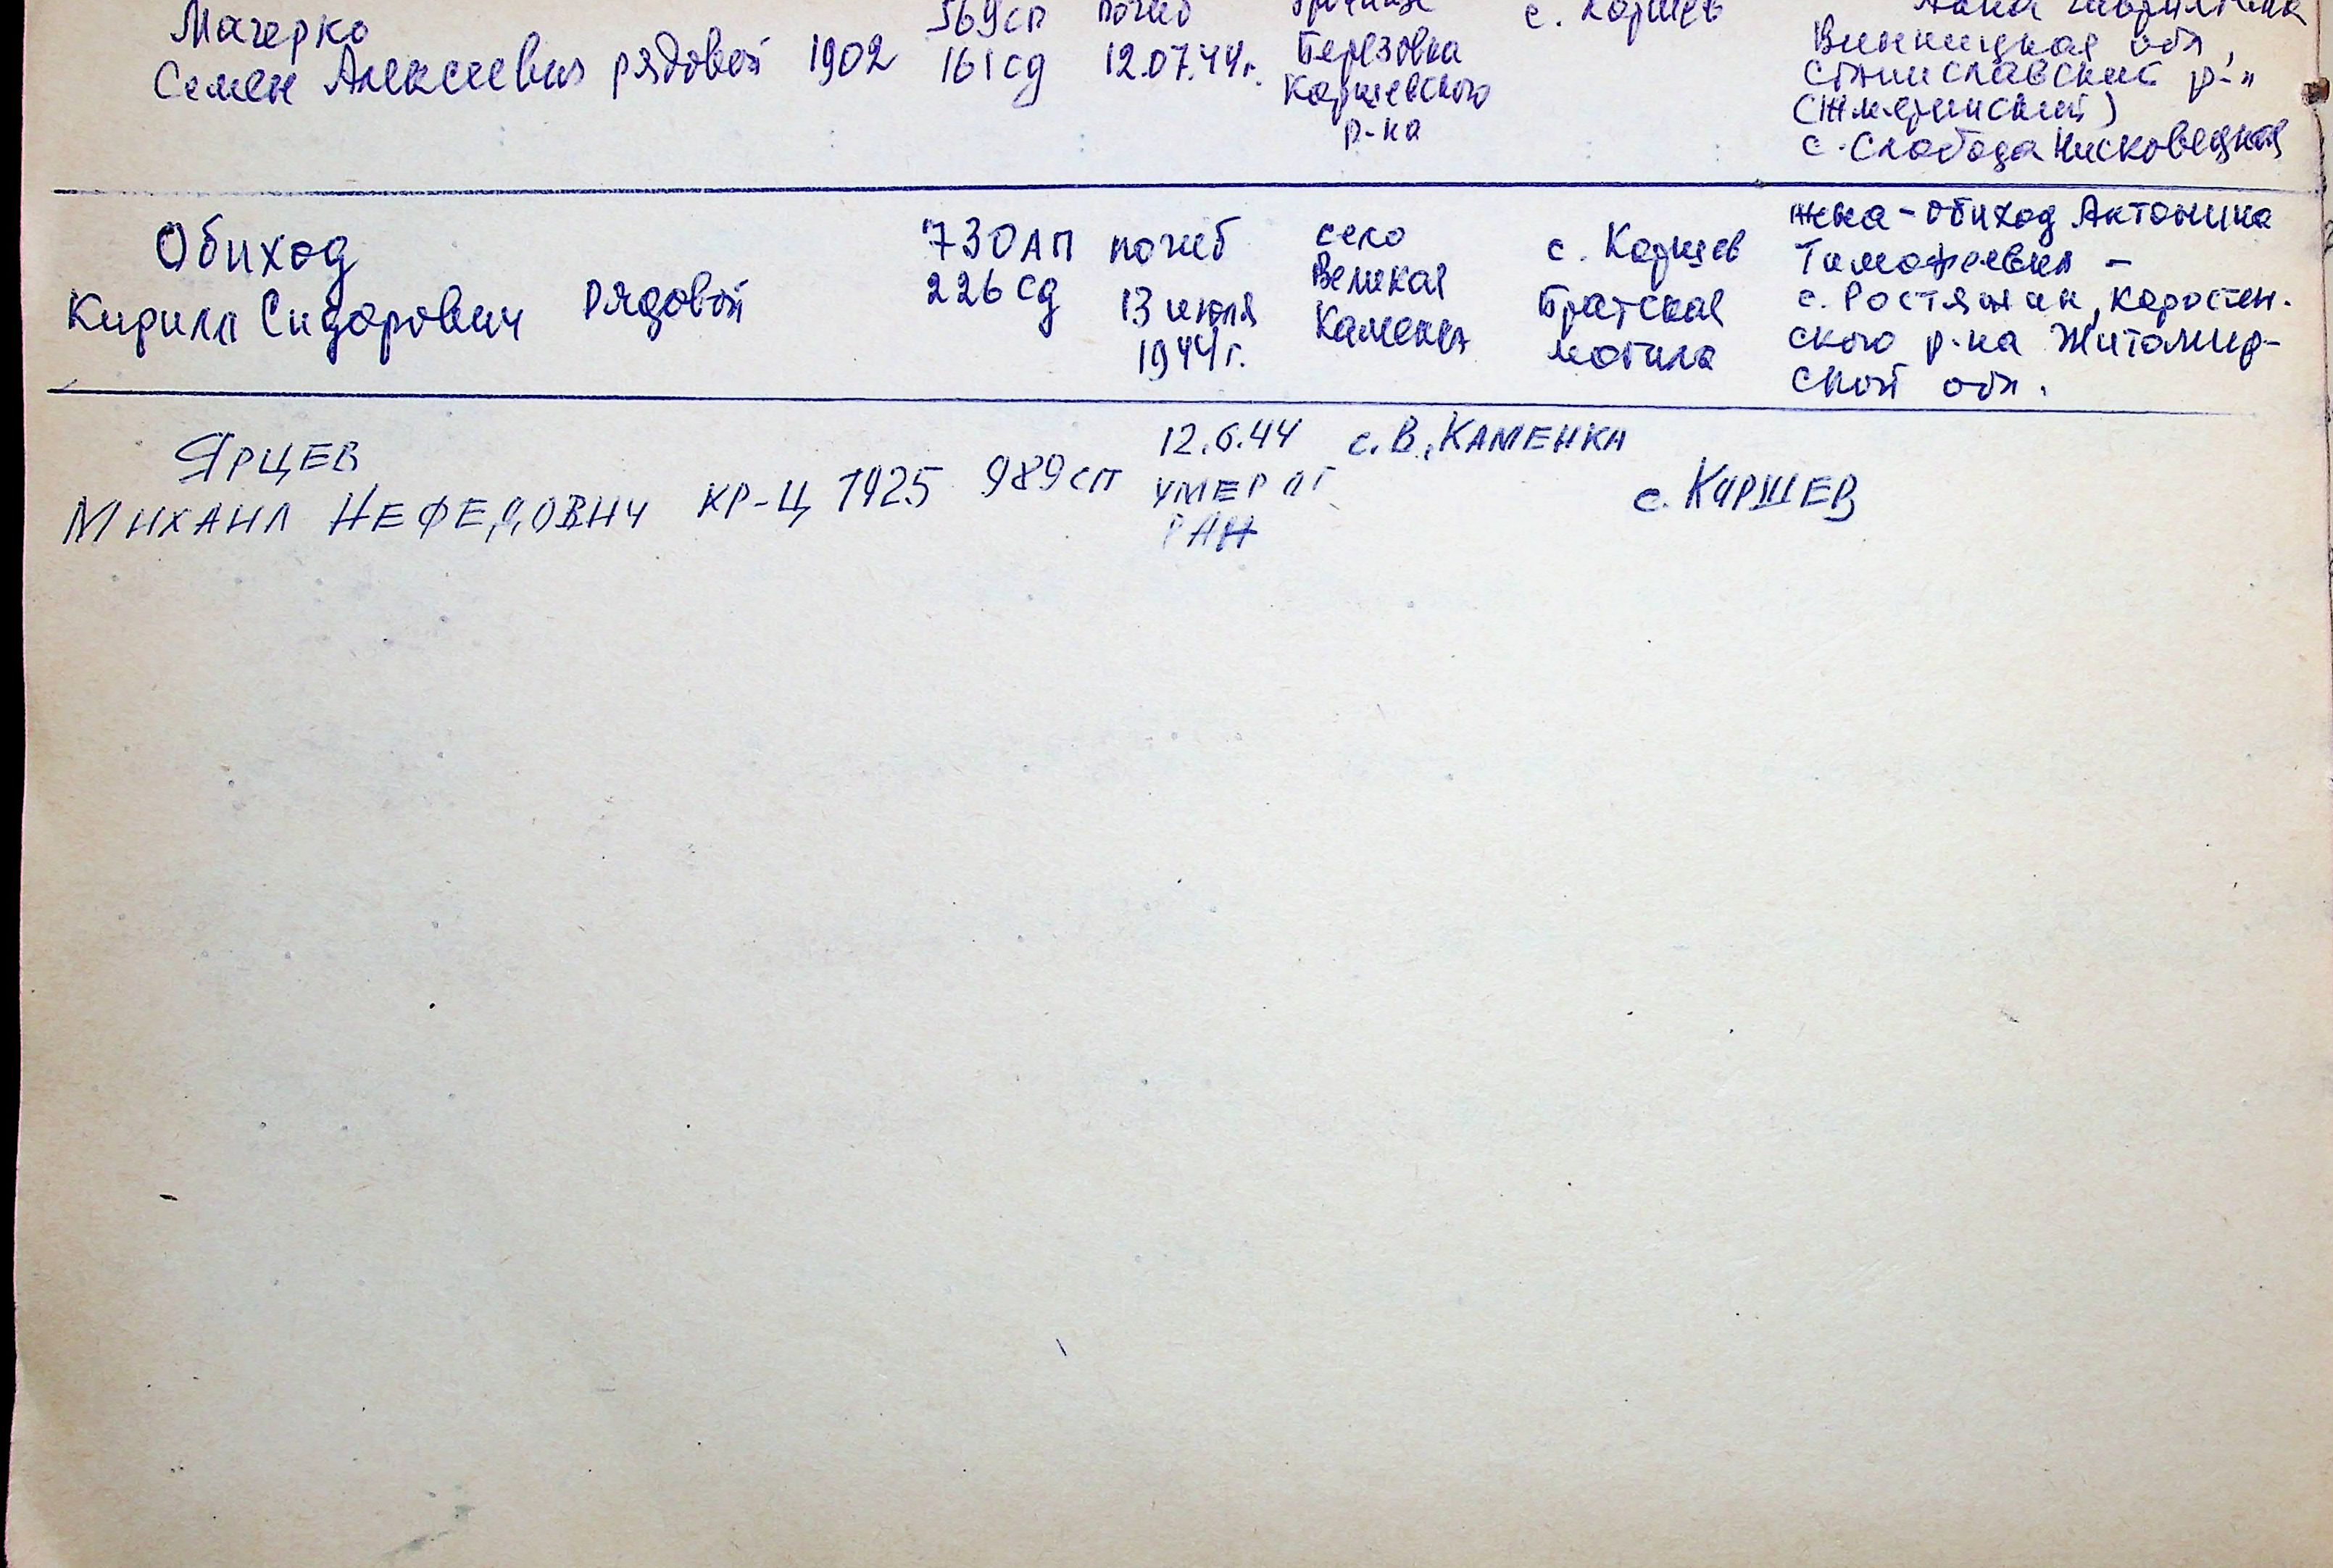 569сп погиб с. Коршев
Мачерко
Семен Алексеевич рядовой 1902 161сд 12.07.44г. Березовка Коршевского р-ка
Винницкая обл,
Станиславский р-н
(Жмеринский)
с. Слобода Носковецкая
Обиход
Кирилл Сидорович рядовой
730АП
226сд
погиб
13 июля
1944г.
село
Великая
Каменка
с. Коршев
Братская
могила
жена - Обиход Антонина
Тимофеевна -
с. Ростяжин, Коростен-
ского р-на Житомир-
ской обл.
ЯРЦЕВ
МИХАИЛ НЕФЕДОВИЧ КР-Ц 1925 989сп
12.6.44
УМЕР ОТ
РАН
с. В. КАМЕНКА
с. КОРШЕВ